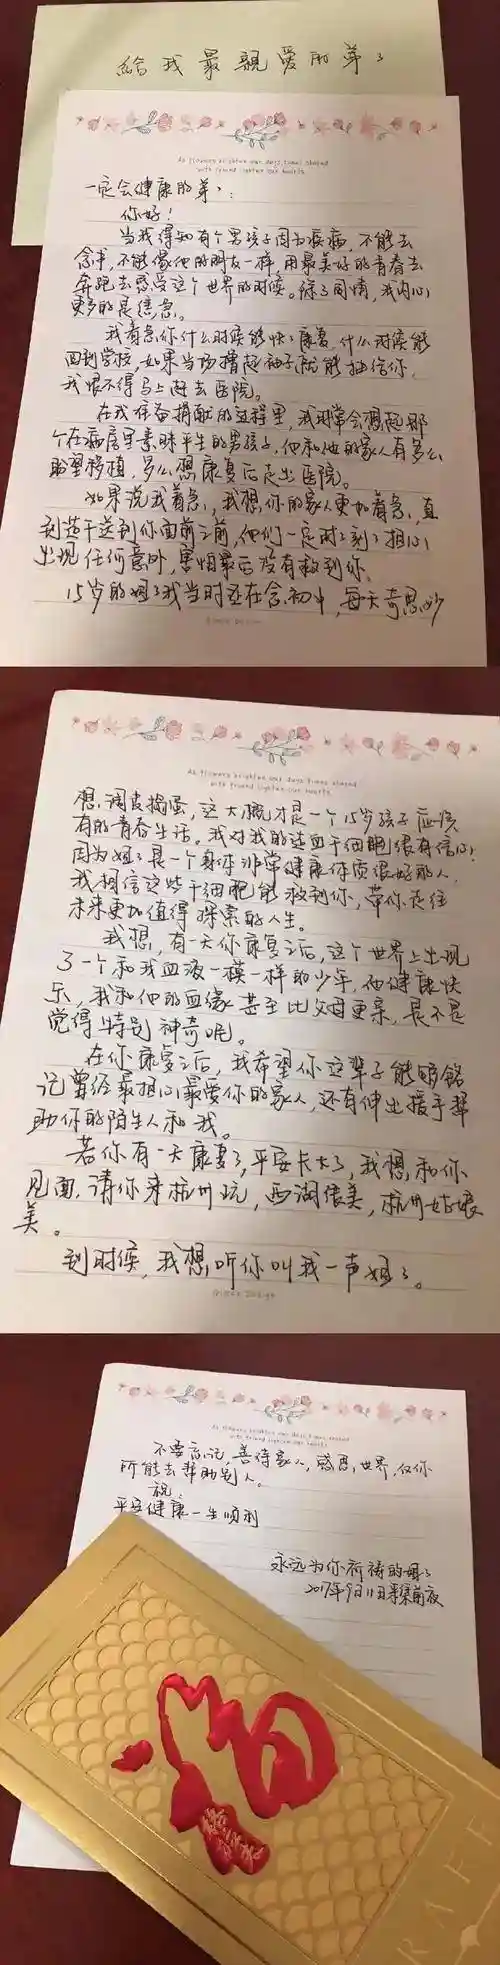 給我最親爱的弟弟
As flowers brighten our days times shared
with friend lighten our hearts
一定会健康的弟弟：
你好！
当我得知有个男孩子因为疾病，不能去
念书，不能像他的朋友一样，用最美好的青春去
奔跑去感受这个世界的时候。除了同情，我内心
更多的是着急。
我着急你什么时候能快快康复，什么时候能
回到学校，如果当场撸起袖子就能抽给你，
我恨不得马上赶去医院。
在我准备捐献的过程里，我时常会想起那
个在病房里素昧平生的男孩子，他和他的家人有多么
盼望移植，多么想康复后走出医院。
如果说我着急，我想，你的家人更加着急，直
到造干送到你面前之前，他们一定时时刻刻担心
出现任何意外，害怕最后没有救到你。
15岁的姐姐我当时还在念初中，每天奇思妙
As flowers brighten our days times shared
with friend lighten our hearts
想，调皮捣蛋，这大概才是一个15岁孩子应该
有的青春生活。我对我的造血干细胞很有信心！
因为姐姐是一个身体非常健康体质很好的人，
我相信这些干细胞能救到你，带你走往
未来更加值得探索的人生。
我想，有一天你康复之后，这个世界上出现
了一个和我血液一模一样的少年，他健康快
乐，我和他的血缘甚至比父母更亲，是不是
觉得特别神奇呢。
在你康复之后，我希望你这辈子能够铭
记曾经最担心最爱你的家人，还有伸出援手帮
助你的陌生人和我。
若你有一天康复了，平安长大了，我想和你
见面，请你来杭州玩，西湖很美，杭州姑娘
美。
到时候，我想听你叫我一声姐姐。
As flowers brighten our days times shared
with friend lighten our hearts
不要忘记，善待家人，感恩世界，仅你
所能去帮助别人。
祝，
平安健康一生顺利
永远为你祈祷的姐姐
2017年9月11日采集前夜
福